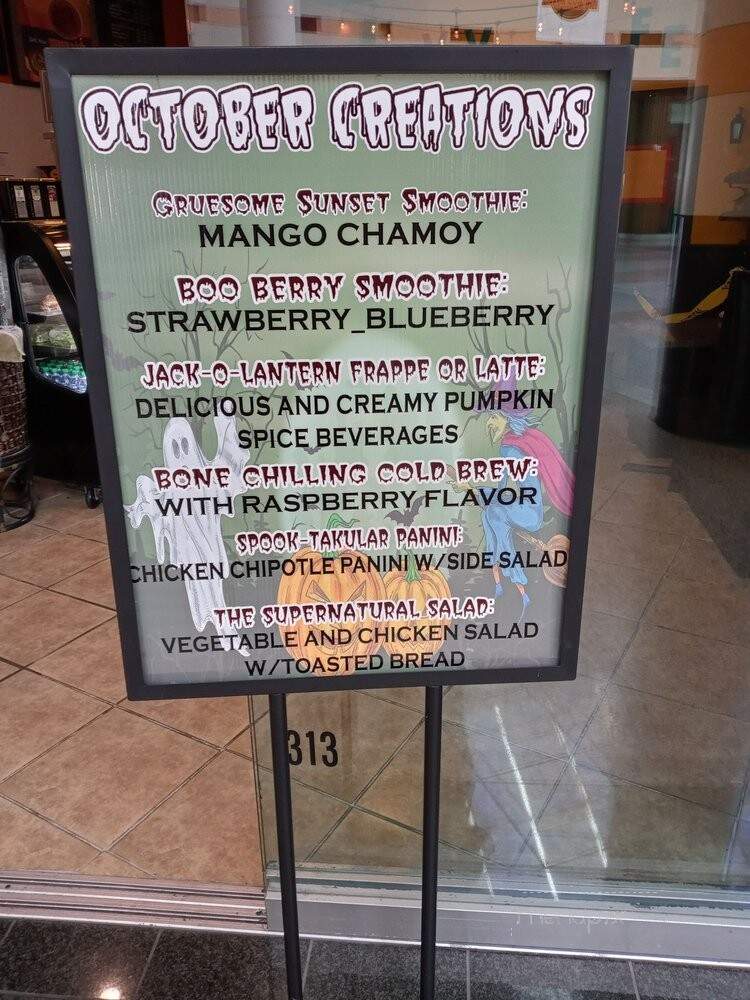 OCTOBER CREATIONS
GRUESOME SUNSET SMOOTHIE:
MANGO CHAMOY
BOO BERRY SMOOTHIE:
STRAWBERRY_BLUEBERRY
JACK-O-LANTERN FRAPPE OR LATTE:
DELICIOUS AND CREAMY PUMPKIN
SPICE BEVERAGES
BONE CHILLING COLD BREW:
WITH RASPBERRY FLAVOR
SPOOK-TAKULAR PANINI:
CHICKEN CHIPOTLE PANINI W/SIDE SALAD
THE SUPERNATURAL SALAD:
VEGETABLE AND CHICKEN SALAD
W/TOASTED BREAD
313